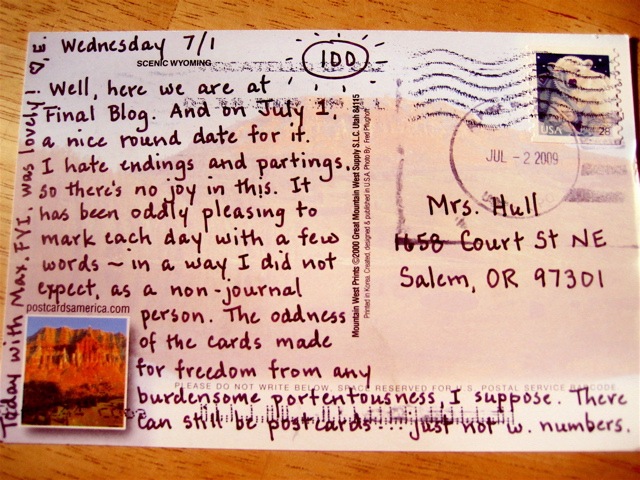 Wednesday 7/1
SCENIC WYOMING
100
Well, here we are at
Final Blog. And on July 1,
a nice round date for it.
I hate endings and partings,
so there's no joy in this. It
has been oddly pleasing to
mark each day with a few
words ~ in a way I did not
expect, as a non-journal
person. The oddness
of the cards made
for freedom from any
burdensome portentousness, I suppose. There
can still be postcards... just not w. numbers.
Today with Max. FYI, was lovely! ♡, E.
postcardsamerica.com
Mountain West Prints ©2000 Great Mountain West Supply S.L.C. Utah 84115
Printed in Korea. Created, designed & published in U.S.A. Photo By: Fred Pflughoft
USA
28
JUL - 2 2009
Mrs. Hull
1658 Court St NE
Salem, OR 97301
PLEASE DO NOT WRITE BELOW, SPACE RESERVED FOR U.S. POSTAL SERVICE BARCODE